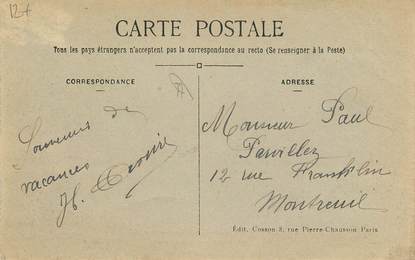 12+
CARTE POSTALE
Tous les pays étrangers n'acceptent pas la correspondance au recto (Se renseigner à la Poste)
CORRESPONDANCE
Souvenirs de
vacances
H.
ADRESSE
Monsieur Paul
Parvillez
12 rue Franklin
Montreuil
Édit. Cosson 3, rue Pierre-Chausson Paris